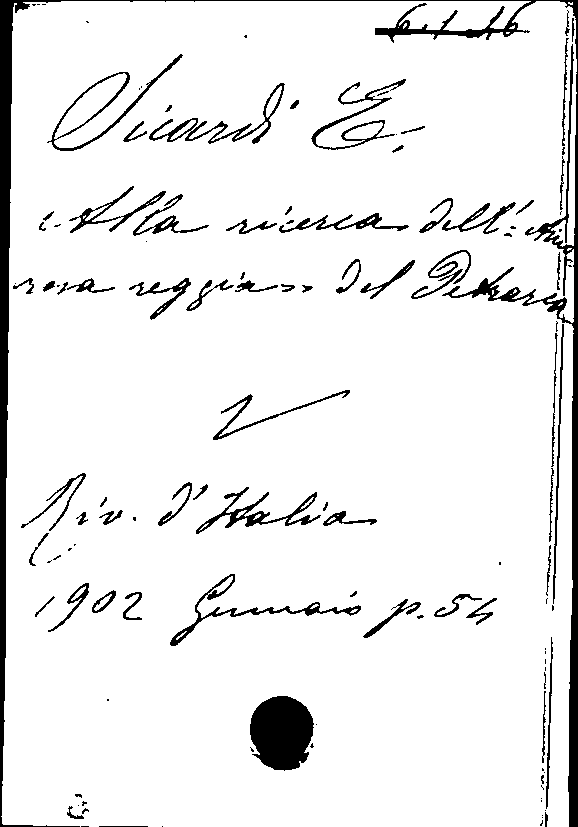 6.1.16
Sicardi E.
Alla ricerca dell'"Amo
rosa reggia" del Petrarca
Riv. d'Italia
1902 Gennaio p. 54